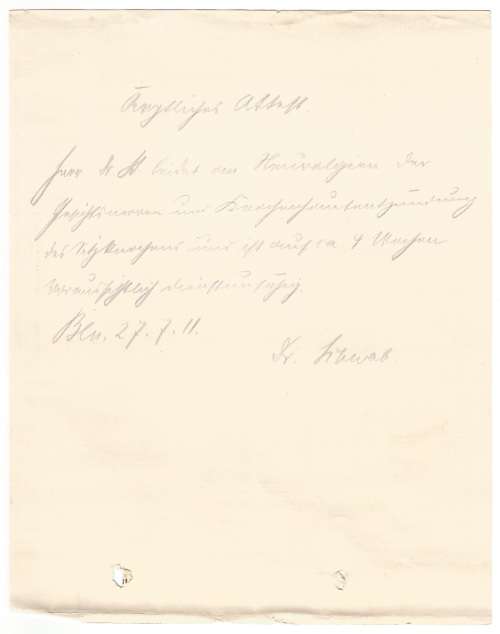 Ärztliches Attest
Herr Dr. H leidet an Neuralgien der
Gesichtsnerven und Knochenhautentzündung
des Sitzknochens und ist auf ca 4 Wochen
voraussichtlich dienstunfähig.
Bln. 27. 7. 11.
Dr. Schwab